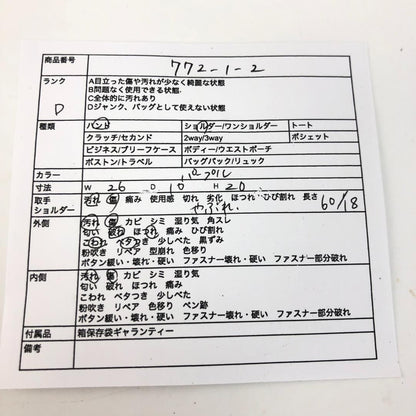 商品番号 772-1-2
ランク A目立った傷や汚れが少なく綺麗な状態
B問題なく使用できる状態
C全体的に汚れあり
D Dジャンク、バッグとして使えない状態
種類 ハンド ショルダー/ワンショルダー トート
クラッチ/セカンド 2way/3way ポシェット
ビジネス/ブリーフケース ボディー/ウエストポーチ
ボストン/トラベル バッグパック/リュック
カラー パープル
寸法 W 26 D 10 H 20
取手 汚れ 傷 痛み 使用感 切れ 劣化 ほつれ ひび割れ 長さ 60/18
ショルダー やぶれ
外側 汚れ 傷 カビ シミ 湿り気 角スレ
匂い 破れ ほつれ 痛み ひび割れ
こわれ ベタつき 少しべた 黒ずみ
粉吹き リペア 型崩れ 色移り
ボタン緩い・壊れ・硬い ファスナー壊れ・硬い ファスナー部分破れ
内側 汚れ 傷 カビ シミ 湿り気
匂い 破れ ほつれ 痛み
こわれ ベタつき 少しべた
粉吹き リペア 色移り ペン跡
ボタン緩い・壊れ・硬い ファスナー壊れ・硬い ファスナー部分破れ
付属品 箱保存袋ギャランティー
備考